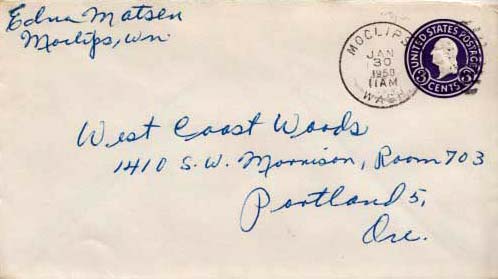 Edna Matsen
Moclips, Wn.
MOCLIPS
JAN
30
1950
11AM
WASH.
UNITED STATES POSTAGE
3 CENTS 3
West Coast Woods
1410 S.W. Morrison, Room 703
Portland 5,
Ore.